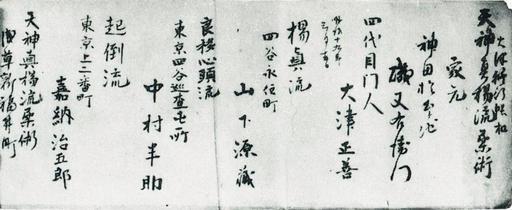 天神真楊流柔術
家元
神田於玉ヶ池
磯又右衛門
四代目門人
大津正善
楊真流
四谷永住町
山下源蔵
良移心頭流
東京四谷巡査屯所
中村半助
起倒流
東京上二番町
嘉納治五郎
天神真楊流柔術
浅草新福井町